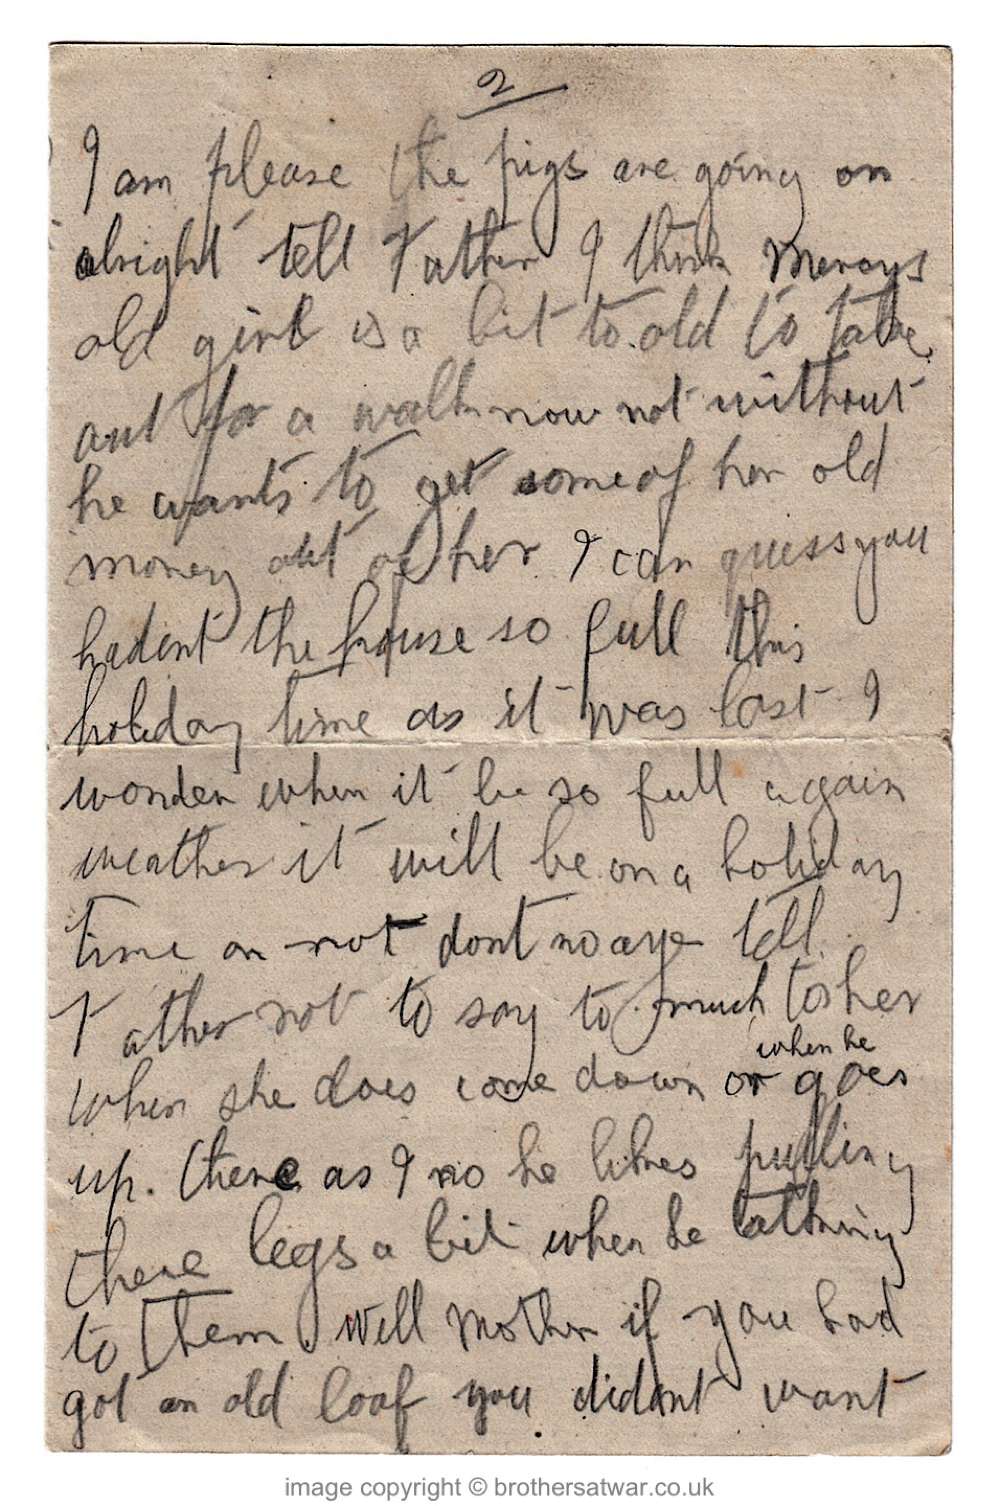 2
I am please the pigs are going on
alright tell Father I think Mercys
old girl is a bit to old to take
out for a walk now not without
he wants to get some of her old
money out of her I can guess you
hadent the house so full this
holiday time as it was last I
wonder when it be so full again
weather it will be on a holiday
time or not dont no aye tell
Father not to say to much to her
when she does come down or when he goes
up. there as I no he likes pulling
there legs a bit when he talking
to them well Mother if you had
got an old loaf you didant want
image copyright © brothersatwar.co.uk